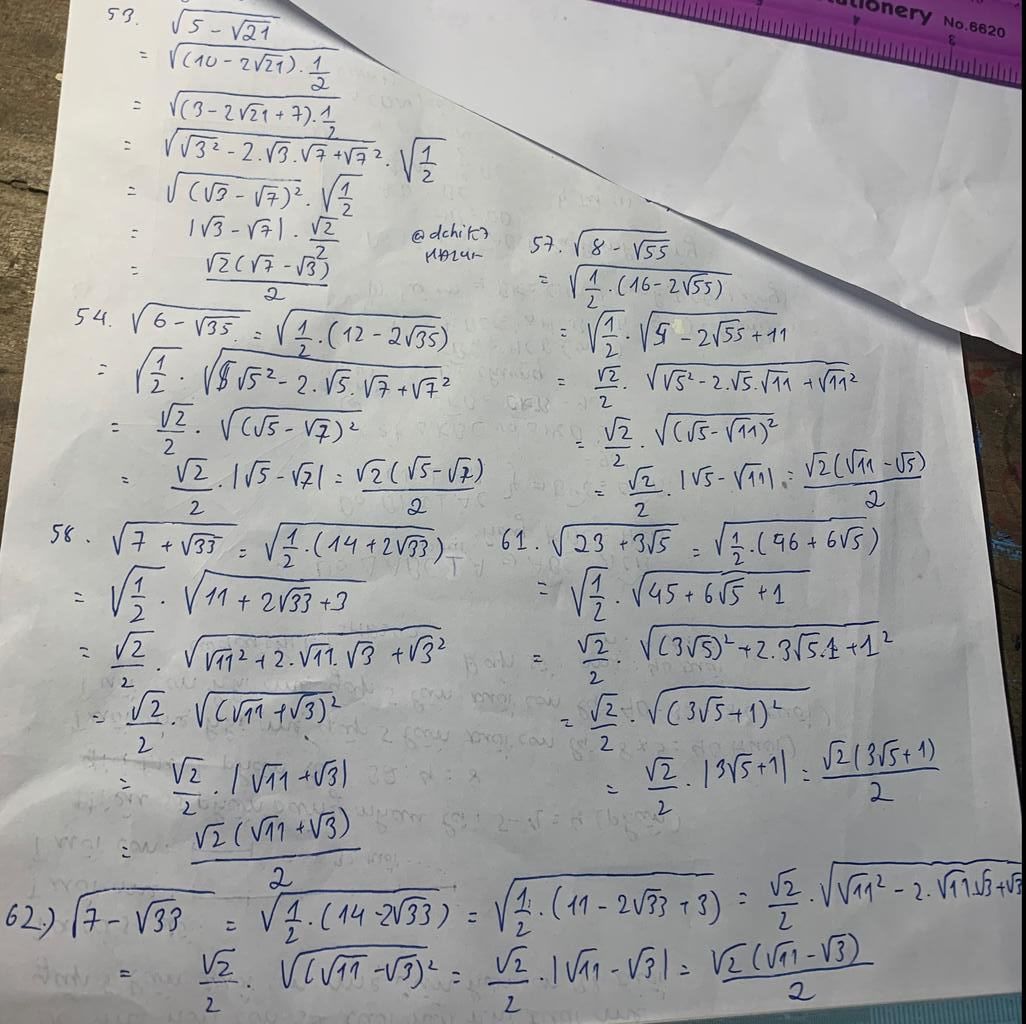 tationery No.6620
53. √(5 - √21)
= √((10 - 2√21) . 1/2)
= √((3 - 2√21 + 7) . 1/2)
= √(√3² - 2.√3.√7 + √7²) . √(1/2)
= √((√3 - √7)²) . √(1/2)
= |√3 - √7| . √2/2
= √2(√7 - √3)/2
54. √(6 - √35) = √(1/2 . (12 - 2√35))
= √(1/2) . √(√5² - 2.√5.√7 + √7²)
= √2/2 . √((√5 - √7)²)
= √2/2 . |√5 - √7| = √2(√5 - √7)/2
57. √(8 - √55)
= √(1/2 . (16 - 2√55))
= √(1/2) . √(5 - 2√55 + 11)
= √2/2 . √(√5² - 2.√5.√11 + √11²)
= √2/2 . √((√5 - √11)²)
= √2/2 . |√5 - √11| = √2(√11 - √5)/2
58. √(7 + √33) = √(1/2 . (14 + 2√33))
= √(1/2) . √(11 + 2√33 + 3)
= √2/2 . √(√11² + 2.√11.√3 + √3²)
= √2/2 . √((√11 + √3)²)
= √2/2 . |√11 + √3|
= √2(√11 + √3)/2
61. √(23 + 3√5) = √(1/2 . (46 + 6√5))
= √(1/2) . √(45 + 6√5 + 1)
= √2/2 . √((3√5)² + 2.3√5.1 + 1²)
= √2/2 . √((3√5 + 1)²)
= √2/2 . |3√5 + 1| = √2(3√5 + 1)/2
62.) √(7 - √33) = √(1/2 . (14 - 2√33)) = √(1/2 . (11 - 2√33 + 3)) = √2/2 . √(√11² - 2.√11.√3 + √3
= √2/2 . √((√11 - √3)²) = √2/2 . |√11 - √3| = √2(√11 - √3)/2